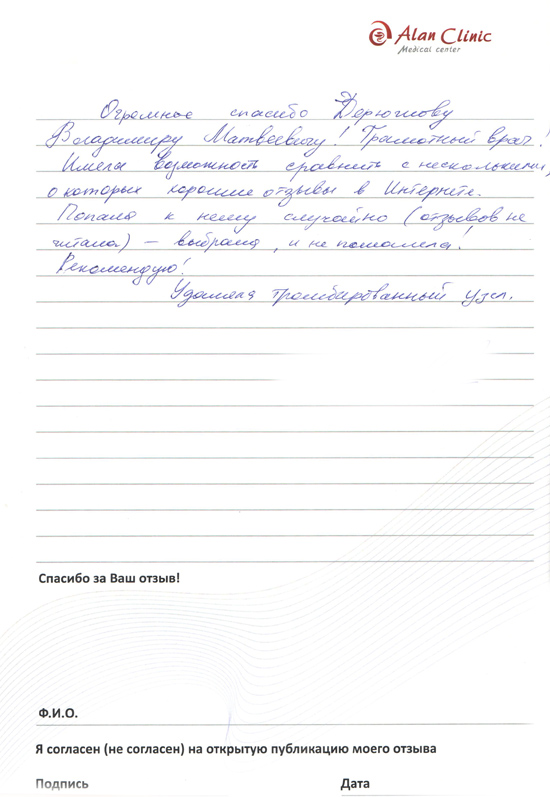 Alan Clinic
Medical center
Огромное спасибо Дерюгнову
Владимиру Матвеевичу! Грамотный врач!
Имела возможность сравнить с несколькими,
о которых хорошие отзывы в Интернете.
Попала к нему случайно (отзывов не
читала) – выбрала, и не пожалела!
Рекомендую!
Удаляла тромбированный узел.
Спасибо за Ваш отзыв!
Ф.И.О.
Я согласен (не согласен) на открытую публикацию моего отзыва
Подпись Дата